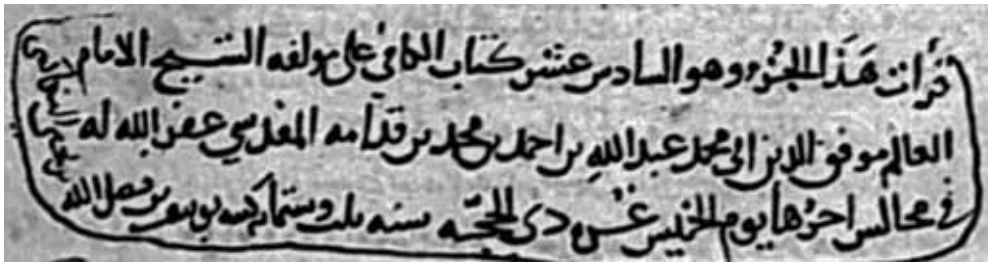 قرأت هذا الجزء وهو السادس عشر من كتاب الكافي على مولفه الشيخ الامام
العالم موفق الدين ابي محمد عبد الله بن احمد بن محمد بن قدامه المقدسي غفر الله له
في مجالس اخرها يوم الخميس ذي الحجه سنه ثلث وستمائه كتبه يوسف بن فضل الله